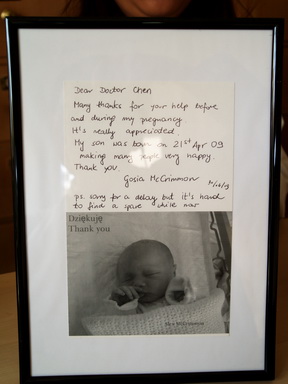 Dear Doctor Chen
Many thanks for your help before
and during my pregnancy
It's really appreciated.
My son was born on 21st Apr 09
making many people very happy.
Thank you.
Gosia McCrimmon
ps. sorry for a delay, but it's hard
to find a spare while now
Dziękuję
Thank you